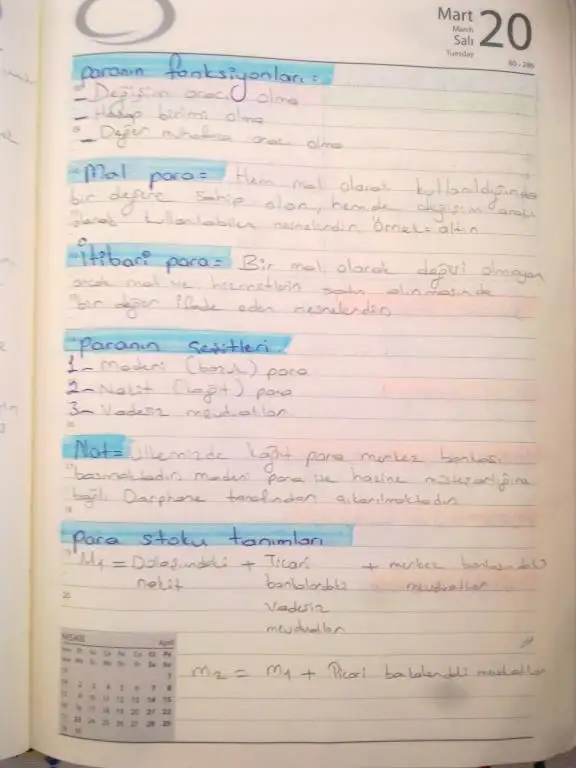 Mart
March
Salı
Tuesday
20
80-286
paranın fonksiyonları =
- Değişim aracı olma
- Hesap birimi olma
- Değer muhafaza aracı olma
Mal para = Hem mal olarak kullanıldığında
bir değere sahip olan, hemde değişim aracı
olarak kullanılabilen nesnelerdir. Örnek = altın
İtibari para = Bir mal olarak değeri olmayan
ancak mal ve hizmetlerin satın alınmasında
bir değer ifade eden nesnelerdir.
paranın çeşitleri
1- Madeni (bozuk) para
2- Nakit (kağıt) para
3- Vadesiz mevduatlar
Not = ülkemizde kağıt para merkez bankası
basmaktadır madeni para ise hazine müsteşarlığına
bağlı Darphane tarafından çıkarılmaktadır
para stoku tanımları
M1 = Dolaşımdaki + Ticari + merkez bankasındaki
nakit bankalardaki mevduatlar
vadesiz
mevduatlar
M2 = M1 + Ticari bankalardaki mevduatlar
NİSAN April